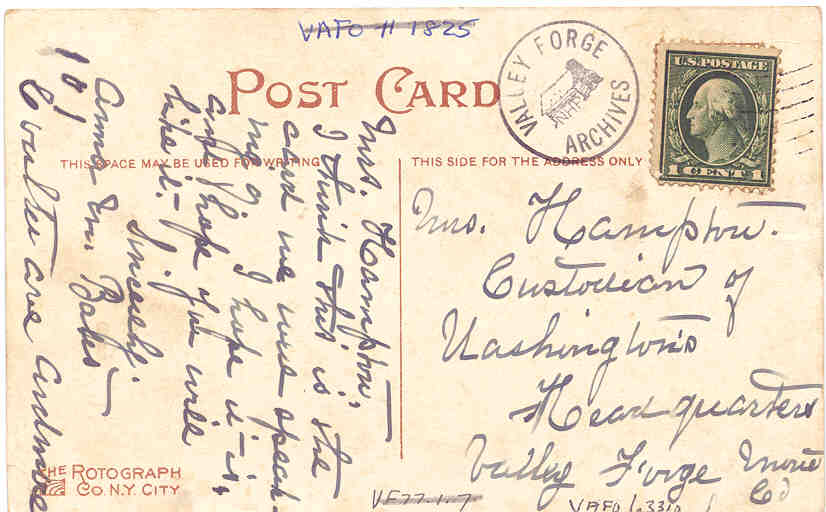 VAFO H 1825
POST CARD
VALLEY FORGE
NHP
ARCHIVES
U.S. POSTAGE
1 CENT 1
THIS SPACE MAY BE USED FOR WRITING
THIS SIDE FOR THE ADDRESS ONLY
Mrs. Hampton,
I think this is the
card we were speak-
ing. I hope it is,
and hope you will
like it.
Sincerely,
Anna M. Bates
101
Coulter ave Ardmore
Mrs. Hampton.
Custodian of
Washington's
Headquarters
Valley Forge
Co
THE ROTOGRAPH
CO. N.Y. CITY
VF77-1-7
VAFO